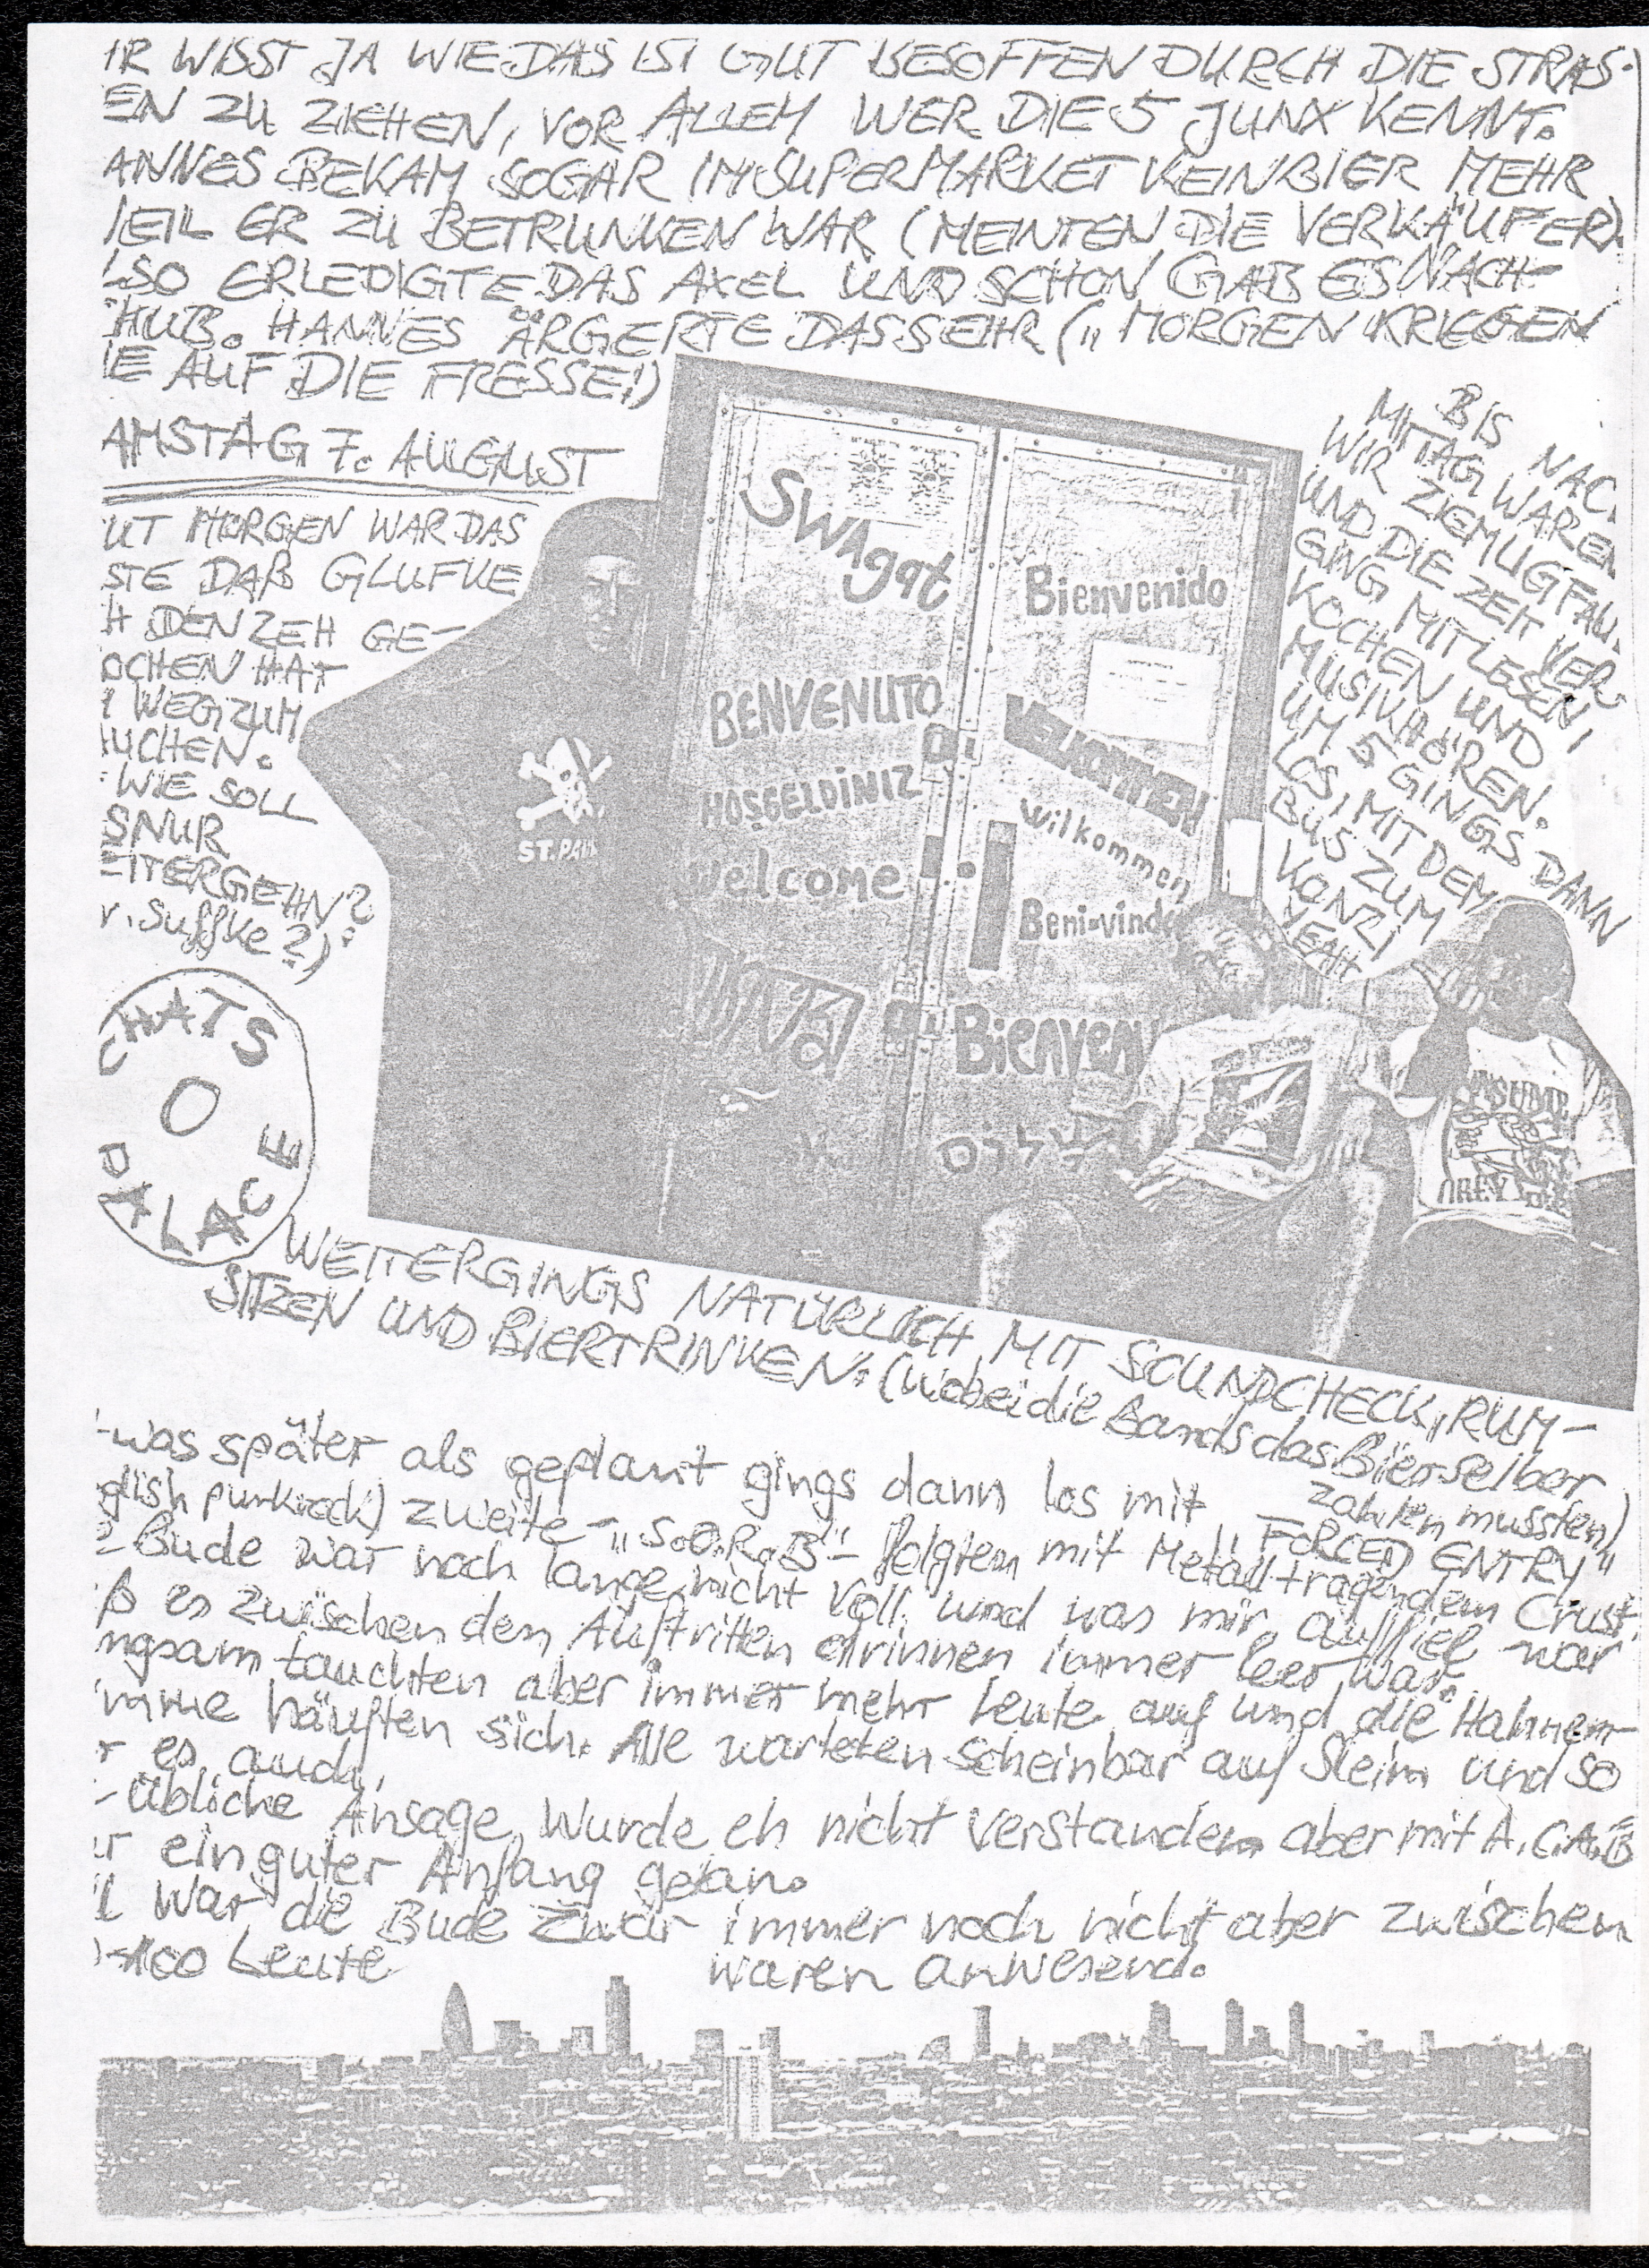 IR WISST JA WIE DAS IST GUT BESOFFEN DURCH DIE STRAS-
EN ZU ZIEHEN, VOR ALLEM WER DIE 5 JUNX KENNT.
ANNES BEKAM SOGAR IM SUPERMARKET KEIN BIER MEHR
EIL ER ZU BETRUNKEN WAR (MEINTEN DIE VERKÄUFER).
LSO ERLEDIGTE DAS AXEL UND SCHON GAB ES NACH-
HUB. HANNES ÄRGERTE DAS SEHR („MORGEN KRIEGEN
IE AUF DIE FRESSE!)
AMSTAG 7. AUGUST
UT MORGEN WAR DAS
STE DAß GLUFKE
H DEN ZEH GE-
OCHEN HAT
WEG ZUM
UCHEN.
WIE SOLL
SNUR
EITERGEHN?
r. Suffke?)
BIS NAC
MITTAG WAREN
WIR ZIEMLIG FAU
UND DIE ZEIT VER
GING MIT LESEN,
KOCHEN UND
MUSIKHÖREN.
UM 5 GINGS DANN
LOS, MIT DEM
BUS ZUM
KONZI
YEAH
SWAgat
Bienvenido
BENVENUTO
VELKOMMEN
HOSGELDiNiZ
Wilkommen
Welcome
Beni-vindo
Bienven
ST. PAU
CHATS
PALACE
WEITERGINGS NATÜRLICH MIT SOUNDCHECK, RUM-
SITZEN UND BIERTRINKEN. (wobei die Bands das Bier selber
zahlen mussten)
was später als geplant gings dann los mit „FORCED ENTRY"
glish punkrock) zweite - „S.O.R.B" - folgten mit Metall tragendem Crust.
Bude war noch lange nicht voll und was mir auffiel war
ß es zwischen den Auftritten drinnen immer leer war.
ngsam tauchten aber immer mehr Leute auf und die Hahnen-
mme häuften sich. Alle warteten scheinbar auf Sleim und so
r es auch.
übliche Ansage wurde eh nicht verstanden aber mit A.C.A.B
r ein guter Anfang getan.
l war die Bude zwar immer noch nicht aber zwischen
-100 Leute waren anwesend.